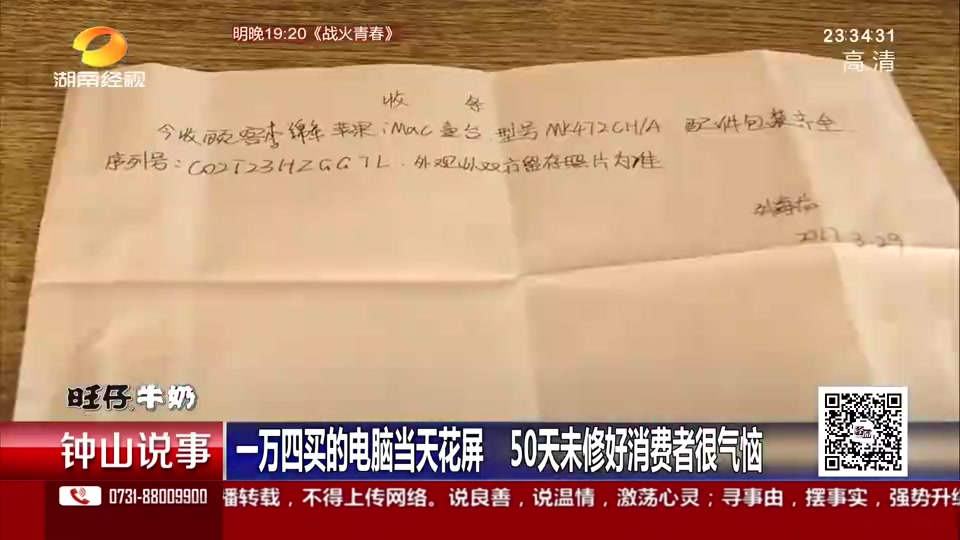 明晚19:20《战火青春》
23:34:31
湖南经视
高清
收 条
今收顾客李 苹果iMac壹台 型号MK472CH/A 配件包装齐全
序列号:C02T23HZGG7L.外观以双方留存照片为准
2017.3.29
旺仔牛奶
钟山说事
一万四买的电脑当天花屏 50天未修好消费者很气恼
0731-88009900
播转载,不得上传网络。说良善,说温情,激荡心灵;寻事由,摆事实,强势升级